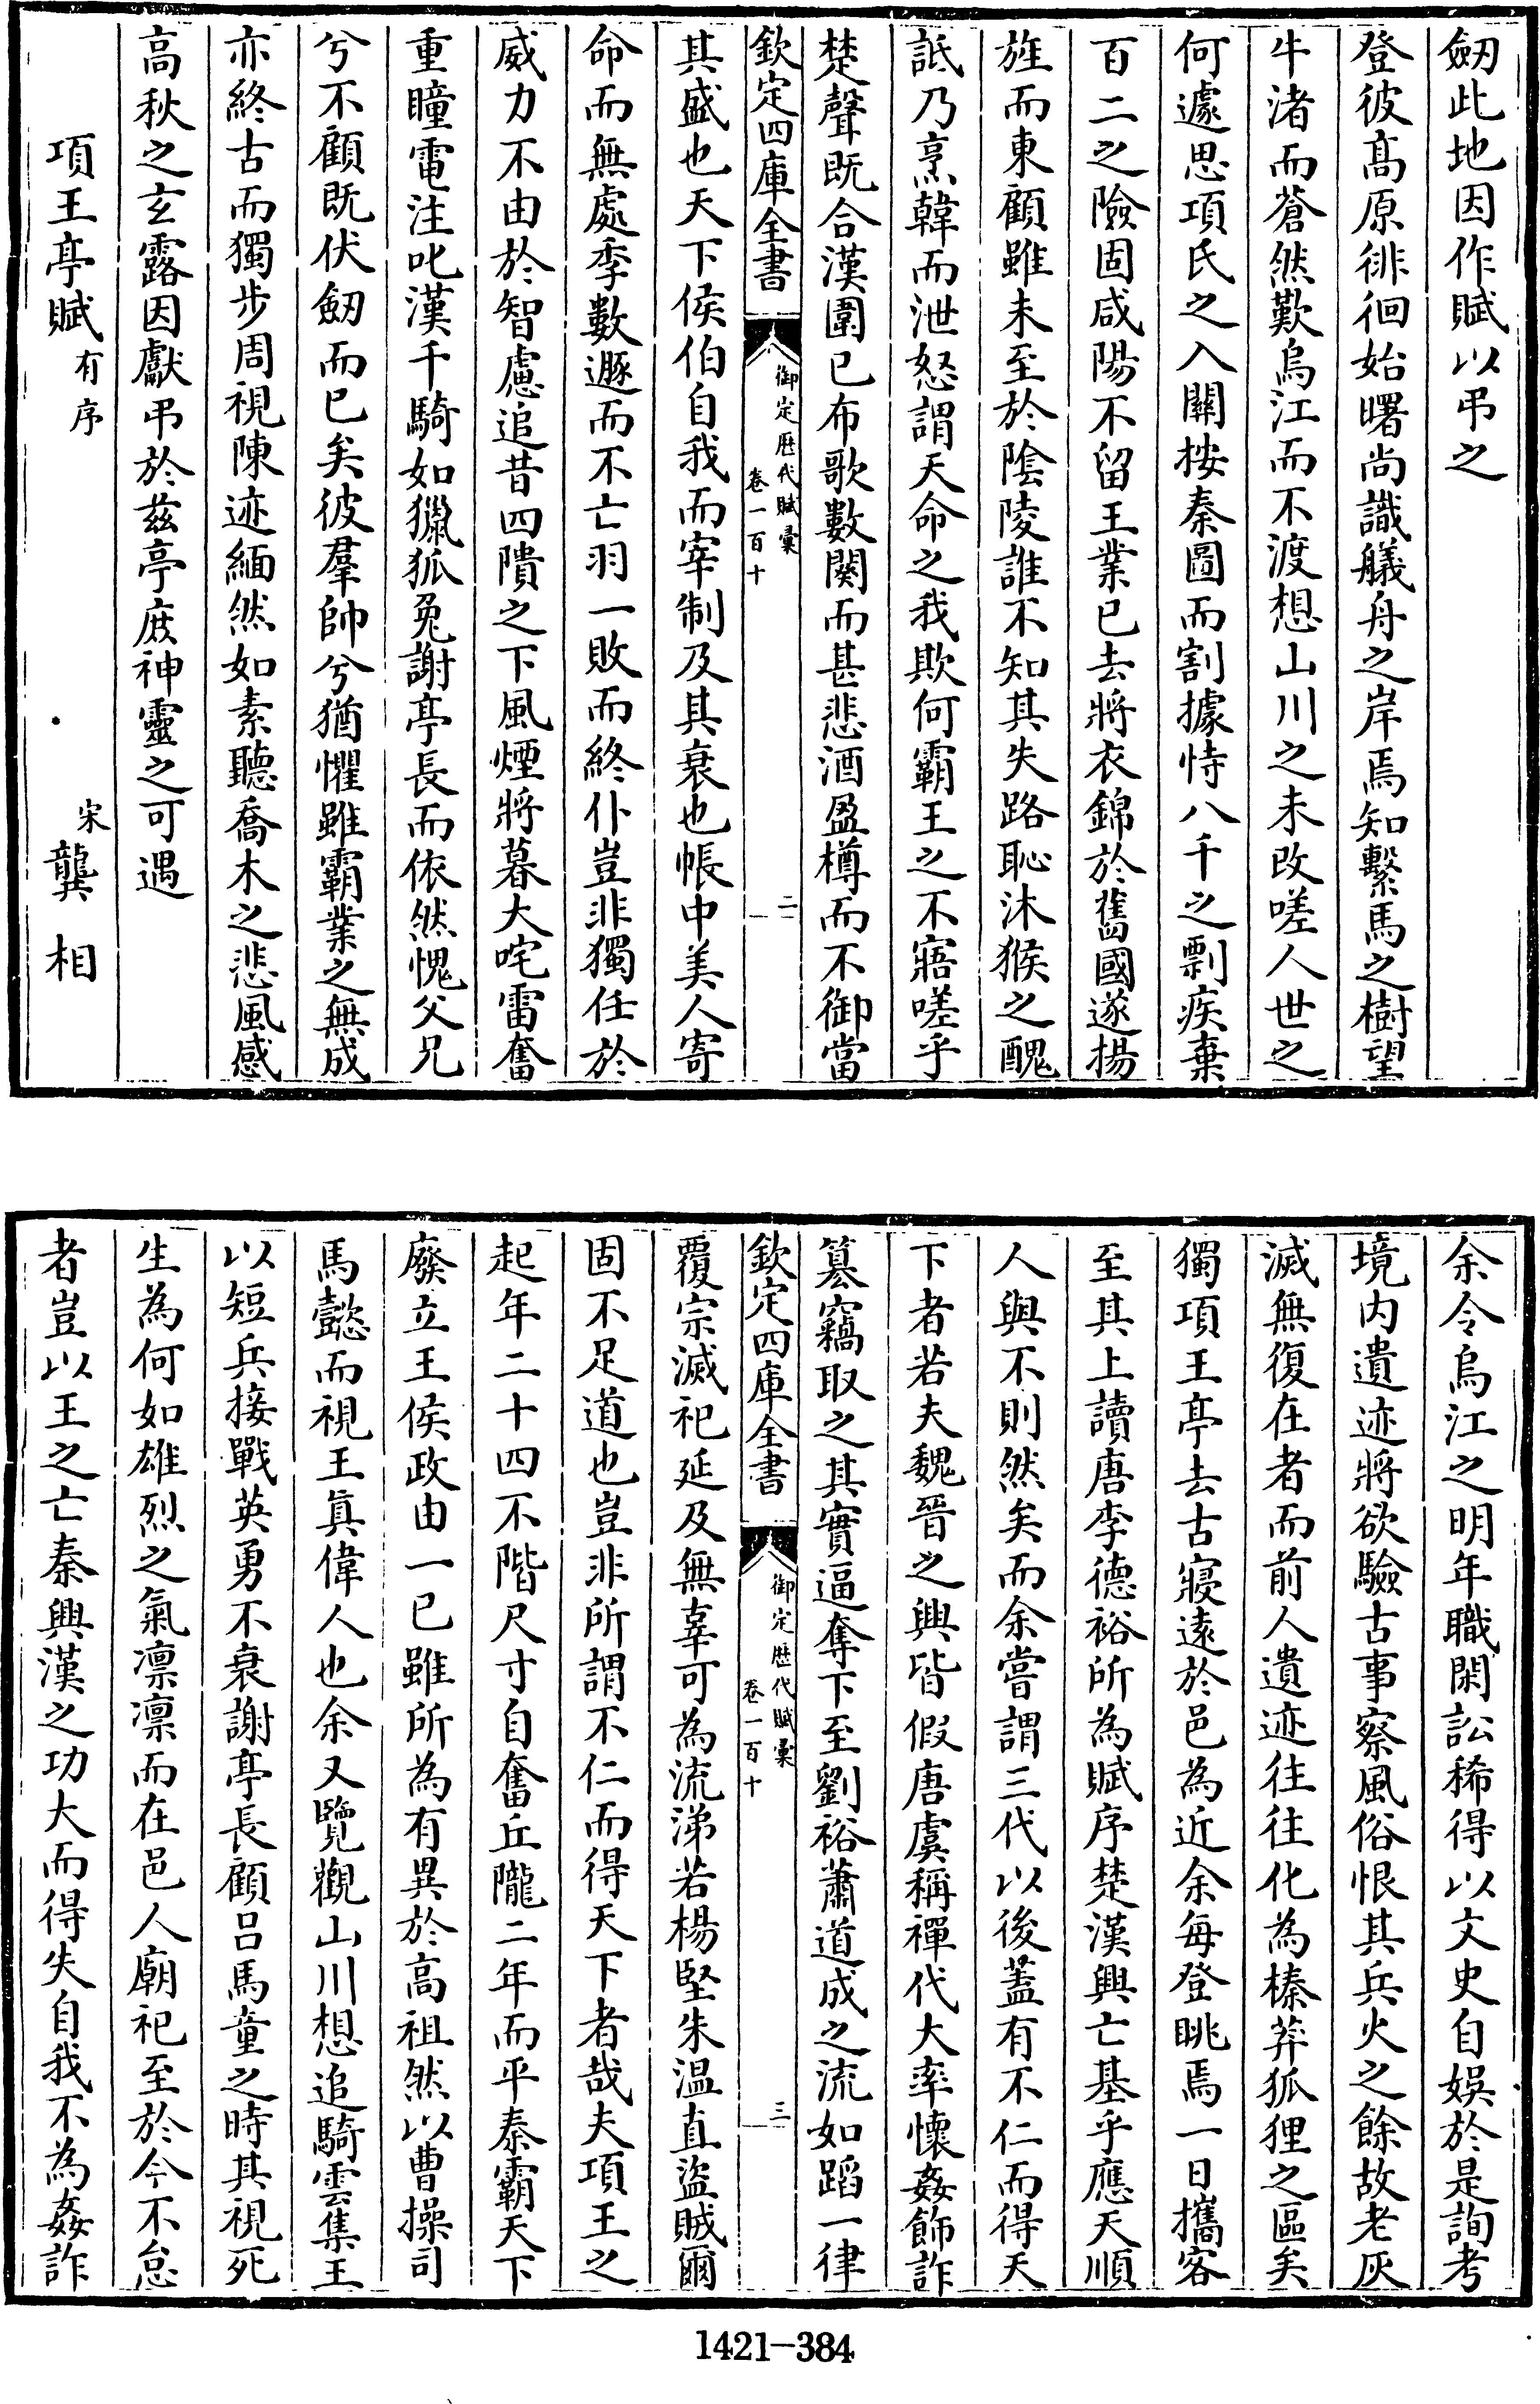 劒此地因作賦以弔之
登彼髙原徘徊始曙尚識艤舟之岸焉知繫馬之樹望
牛渚而蒼然歎烏江而不渡想山川之未改嗟人世之
何遽思項氏之入關按秦圖而割據恃八千之剽疾棄
百二之險固咸陽不留王業已去將衣錦於舊國遂揚
旌而東顧雖未至於陰陵誰不知其失路恥沐猴之醜
詆乃烹韓而泄怒謂天命之我欺何霸王之不寤嗟乎
楚聲既合漢圍已布歌數闋而甚悲酒盈樽而不御當
欽定四庫全書
御定歴代賦彙
卷一百十
二
其盛也天下侯伯自我而宰制及其衰也帳中美人寄
命而無處季數遯而不亡羽一敗而終仆豈非獨任於
威力不由於智慮追昔四隤之下風煙將暮大咤雷奮
重瞳電注叱漢千騎如獵狐兔謝亭長而依然愧父兄
兮不顧既伏劒而已矣彼羣帥兮猶懼雖霸業之無成
亦終古而獨步周視陳迹緬然如素聽喬木之悲風感
高秋之玄露因獻弔於兹亭庻神靈之可遇
項王亭賦有序
宋龔相
余令烏江之明年職閑訟稀得以文史自娯於是詢考
境内遺迹將欲驗古事察風俗恨其兵火之餘故老灰
滅無復在者而前人遺迹往往化為榛莽狐狸之區矣
獨項王亭去古寖逺於邑為近余每登眺焉一日攜客
至其上讀唐李德裕所為賦序楚漢興亡基乎應天順
人與不則然矣而余嘗謂三代以後蓋有不仁而得天
下者若夫魏晉之興皆假唐虞稱禪代大率懷姦飾詐
簒竊取之其實逼奪下至劉裕蕭道成之流如蹈一律
欽定四庫全書
御定歴代賦彙
卷一百十
三
覆宗滅祀延及無辜可為流涕若楊堅朱温直盜賊爾
固不足道也豈非所謂不仁而得天下者哉夫項王之
起年二十四不階尺寸自奮丘隴二年而平秦霸天下
廢立王侯政由一已雖所為有異於高祖然以曹操司
馬懿而視王真偉人也余又覽觀山川想追騎雲集王
以短兵接戰英勇不衰謝亭長顧吕馬童之時其視死
生為何如雄烈之氣凛凛而在邑人廟祀至於今不怠
者豈以王之亡秦興漢之功大而得失自我不為姦詐
1421-384